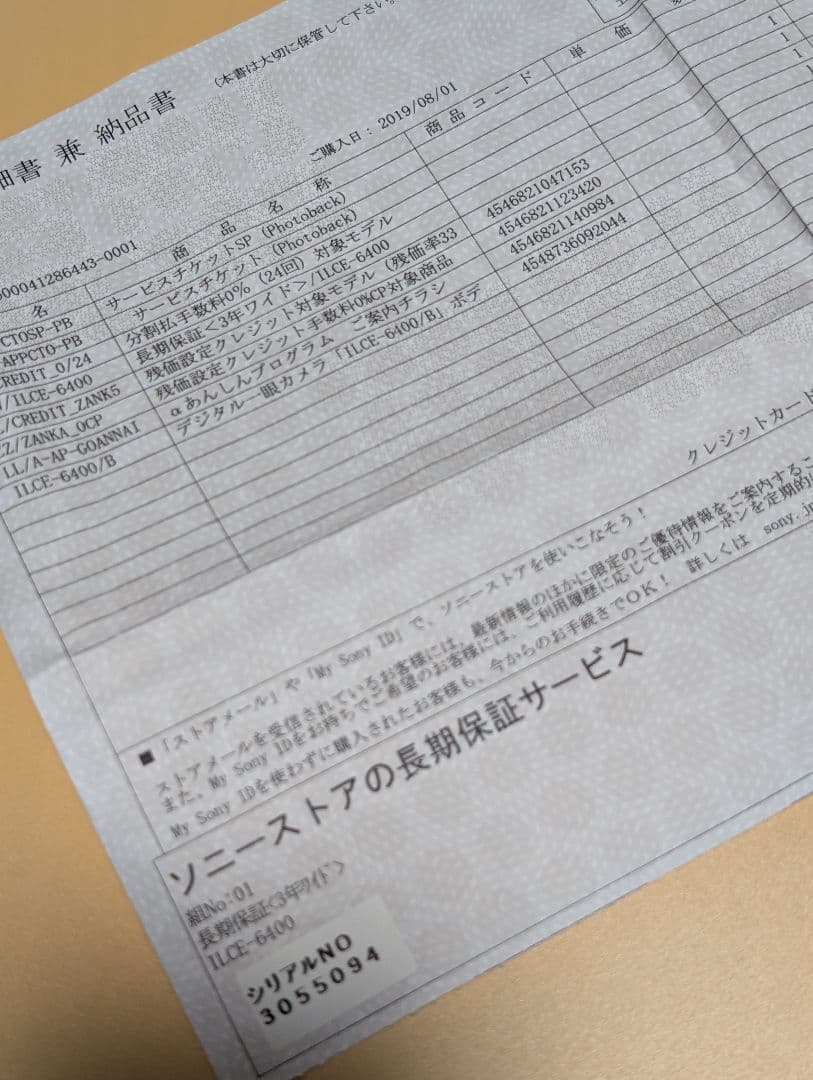 細書 兼 納品書 (本書は大切に保管して下さい。
ご購入日：2019/08/01
000041286443-0001
名 商 品 名 称 商 品 コ ー ド 単 価
CTOSP-PB サービスチケットSP (Photoback) 1
APPCTO-PB サービスチケット (Photoback) 1
CREDIT_0/24 分割払手数料0% (24回) 対象モデル 1
/ILCE-6400 長期保証<3年ワイド>/ILCE-6400 4546821047153
/CREDIT_ZANK5 残価設定クレジット対象モデル (残価率33 4546821123420
ZZ/ZANKA_0CP 残価設定クレジット手数料0%CP対象商品 4546821140984
LL/A-AP-GOANNAI αあんしんプログラム ご案内チラシ 4548736092044
ILCE-6400/B デジタル一眼カメラ「ILCE-6400/B」ボデ
クレジットカード
■「ストアメール」や「My Sony ID」で、ソニーストアを使いこなそう！
ストアメールを受信されているお客様には、最新情報のほかに限定のご優待情報をご案内するこ
また、My Sony IDをお持ちでご希望のお客様には、ご利用履歴に応じて割引クーポンを定期的に
My Sony IDを使わずに購入されたお客様も、今からのお手続きでOK！ 詳しくは sony.jp
ソニーストアの長期保証サービス
組No:01
長期保証<3年ワイド>
ILCE-6400
シリアルNO
3055094